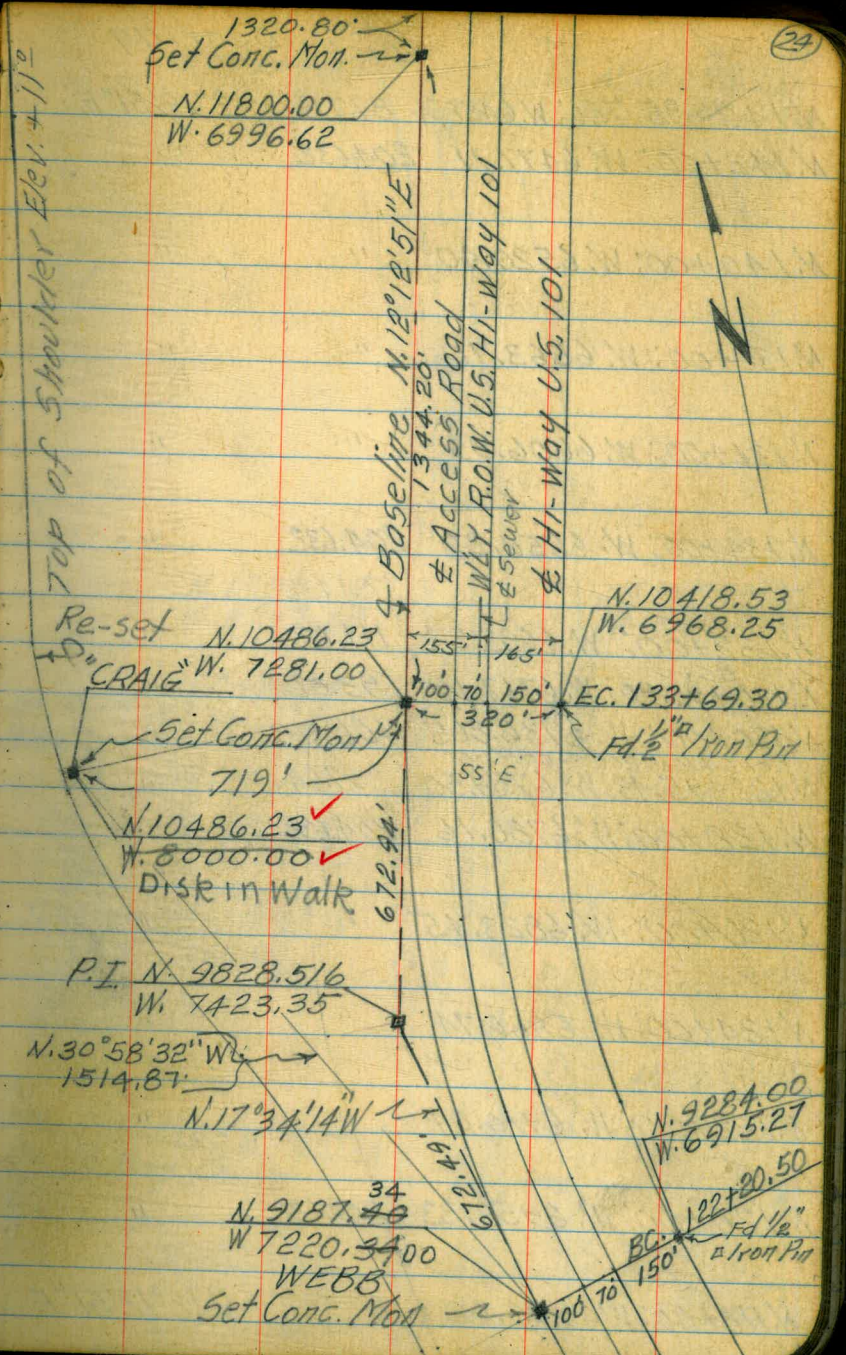 24
1320.80'
Set Conc. Mon.
N. 11800.00
W. 6996.62
Top of Shoulder Elev. + 11°
℄ Baseline N. 12°12'51" E
1344.20'
℄ Access Road
W'LY. R.O.W. U.S. Hi-Way 101
℄ Sewer
℄ Hi-Way U.S. 101
N
Re-set
"CRAIG"
N. 10486.23
W. 7281.00
155'
165'
N. 10418.53
W. 6968.25
100' 70' 150'
320'
EC. 133+69.30
Fd. 1/2" Iron Pin
Set Conc. Mon
719'
55' E
N. 10486.23
W. 8000.00
Disk in Walk
672.94'
P.I. N. 9828.516
W. 7423.35
N. 30°58'32" W
1514.87'
N. 17°34'14" W
672.49'
N. 9284.00
W. 6915.27
34
N. 9187.40
W 7220.34 00
WEBB
Set Conc. Mon
BC. 122+20.50
Fd 1/2"
Iron Pin
100' 70' 150'